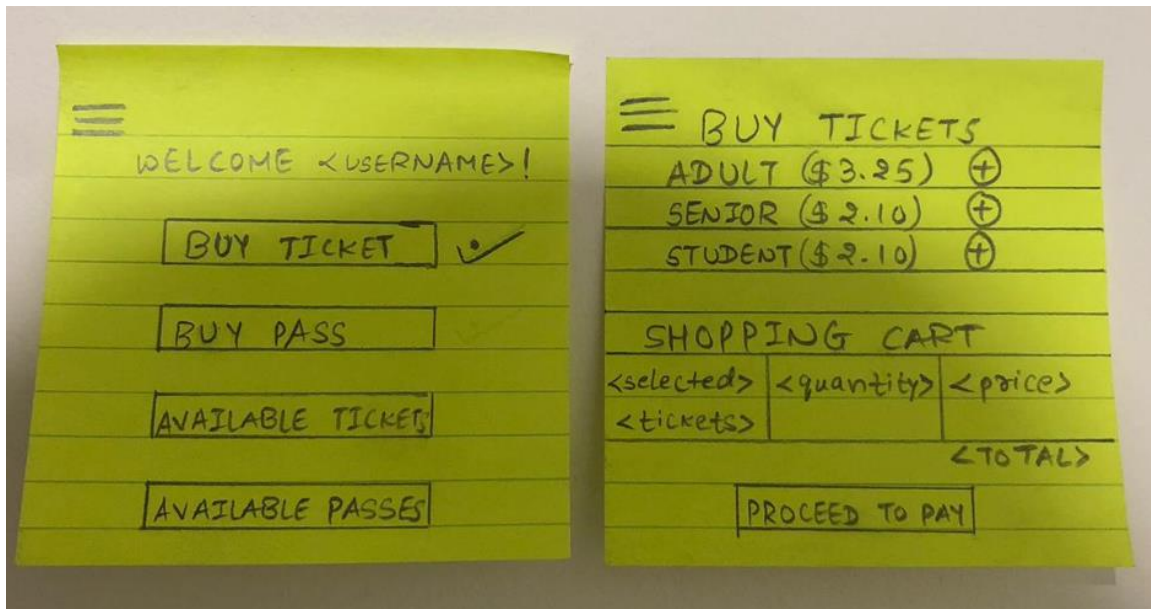 WELCOME <USERNAME>!
BUY TICKET
BUY PASS
AVAILABLE TICKETS
AVAILABLE PASSES
BUY TICKETS
ADULT ($3.25) +
SENIOR ($2.10) +
STUDENT ($2.10) +
SHOPPING CART
<selected> <quantity> <price>
<tickets>
<TOTAL>
PROCEED TO PAY